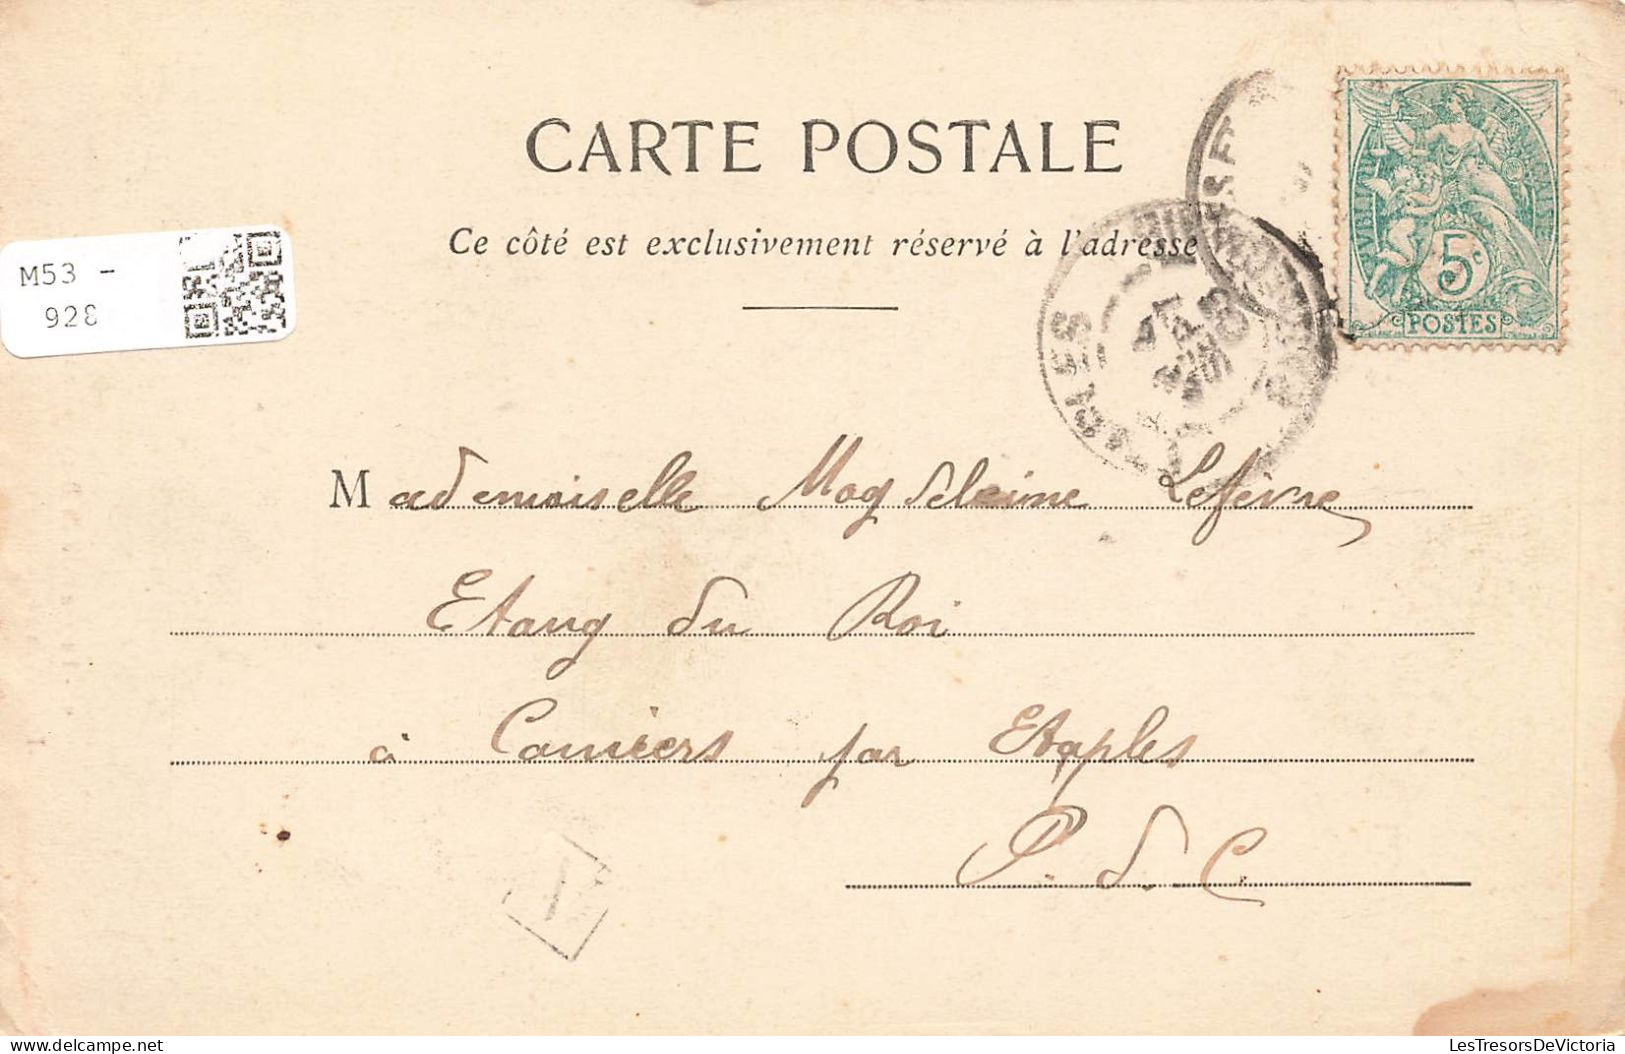 CARTE POSTALE
Ce côté est exclusivement réservé à l'adresse
M53 -
928
RÉPUBLIQUE FRANÇAISE
5c
POSTES
Mademoiselle Magdeleine Lefèvre
Etang du Roi
à Camiers par Etaples
P. d. C.
LesTresorsDeVictoria
delcampe.net